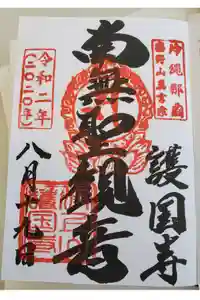 沖縄那覇
高野山真言宗
護国寺
南無聖観音
令和二年
(二〇二〇年)
八月廿九日